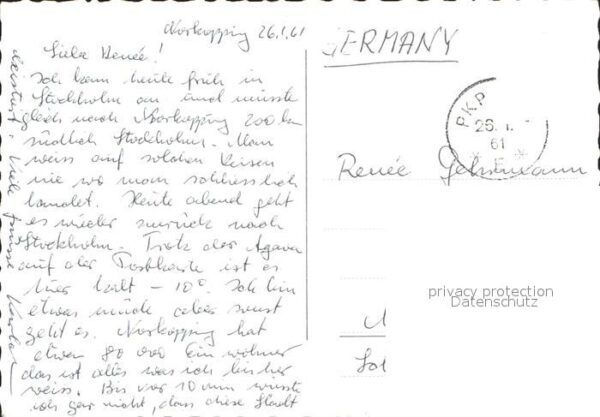 Norkopping 26.1.61
Liebe Renée!
Ich kam heute früh in
Stockholm an und musste
gleich nach Norkopping 200 km
südlich Stockholm. Man
weiss auf solchen Reisen
nie wo man schliesslich
landet. Heute abend geht
es wieder zurück nach
Stockholm. Trotz der Agave
auf der Postkarte ist es
hier kalt - 10°. Ich bin
etwas müde aber sonst
geht es. Norkopping hat
etwa 80 000 Einwohner
das ist alles was ich bisher
weiss. Bis vor 10 min wusste
ich gar nicht, dass diese Stadt
existiert. Viele Grüsse
GERMANY
PKP
26.1.
61
Renée Gehrmann
privacy protection
Datenschutz